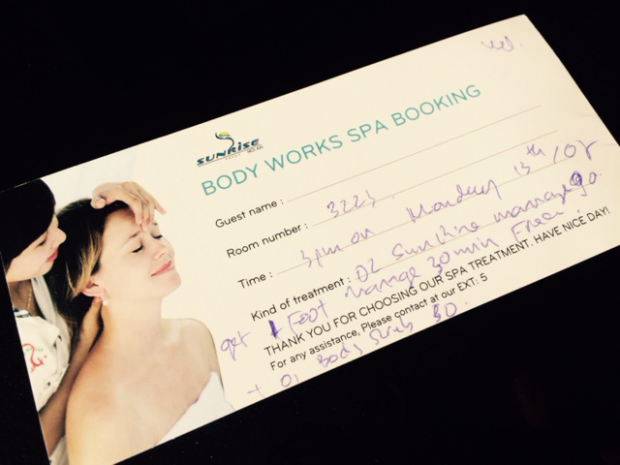 SUNRISE
BODY WORKS SPA BOOKING
Guest name :
Room number : 3223
Time : 3pm on Monday 13th / 08
Kind of treatment : 02 Sunshine massage 90
get 1 Foot massage 30 min Free.
THANK YOU FOR CHOOSING OUR SPA TREATMENT. HAVE NICE DAY!
For any assistance, Please contact at our EXT: 5
+ 01 Body Scrub 30